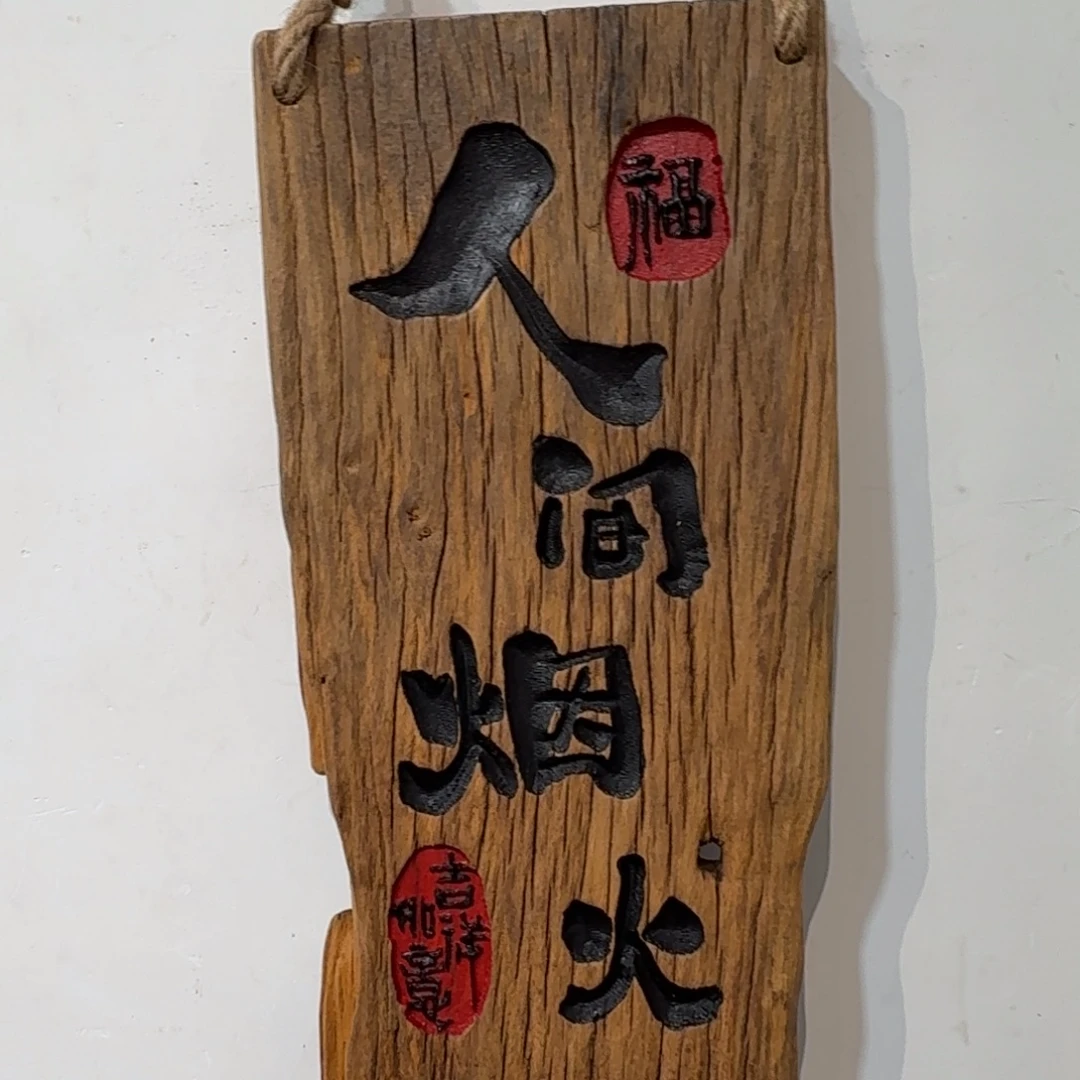 福
人间烟火
吉祥
如意